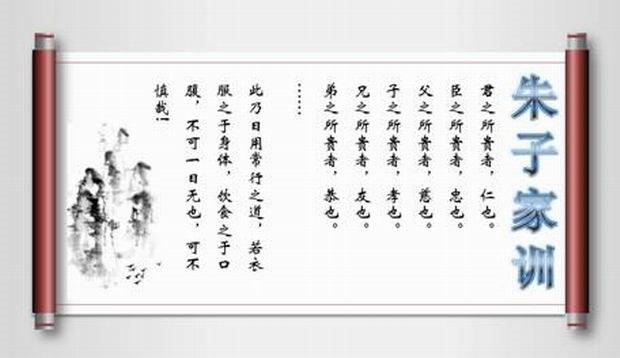 朱子家训
君之所贵者，仁也。
臣之所贵者，忠也。
父之所贵者，慈也。
子之所贵者，孝也。
兄之所贵者，友也。
弟之所贵者，恭也。
……
此乃日用常行之道，若衣
服之于身体，饮食之于口
腹，不可一日无也，可不
慎哉！